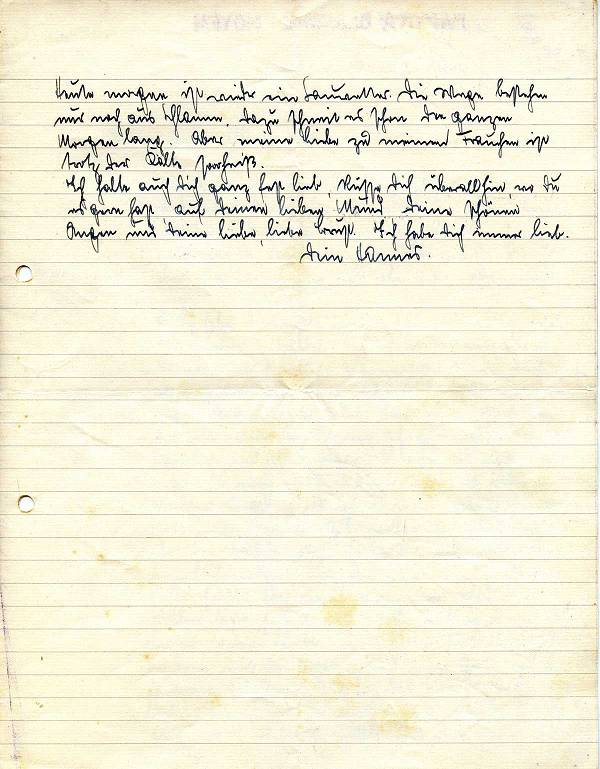 Heute morgen ist wieder ein Sauwetter. Die Wege bestehen
nur noch aus Schlamm. Dazu schneit es schon den ganzen
Morgen lang. Aber meine Liebe zu meinem Frauchen ist
trotz der Kälte
Ich halte auch Dich ganz fest lieb, küsse Dich überallhin, wo Du
es gern hast, auf Deinen lieben Mund, Deine schönen
Augen und Deine liebe, liebe Brust. Ich habe Dich immer lieb.
Dein Hannes.